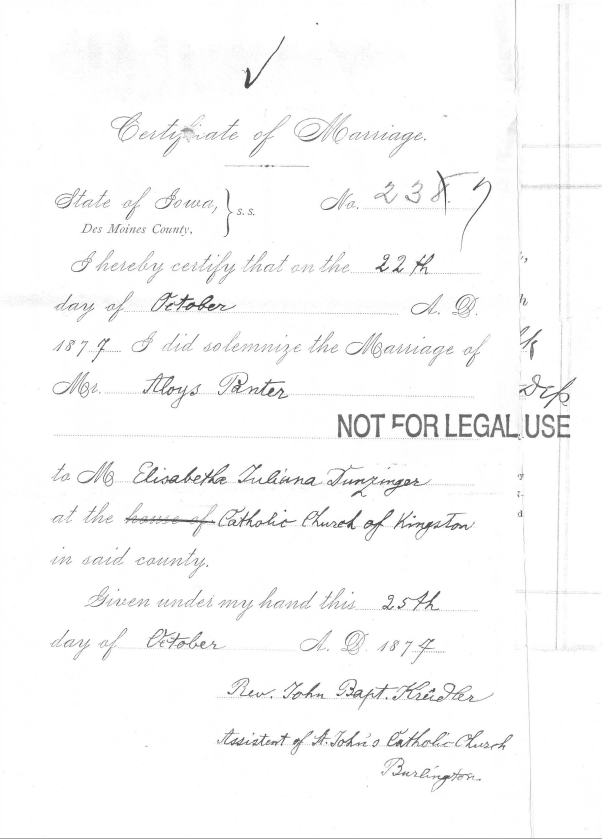 Certificate of Marriage.
State of Iowa, } s.s. No. 2387
Des Moines County.
I hereby certify that on the 22th
day of October A. D.
1877 I did solemnize the Marriage of
Mr. Aloys Panter
NOT FOR LEGAL USE
to M Elisabetha Juliana Tunzinger
at the house of Catholic Church of Kingston
in said county.
Given under my hand this 25th
day of October A. D. 1877
Rev. John Bapt. Kreidler
Assistent of St. John's Catholic Church
Burlington.